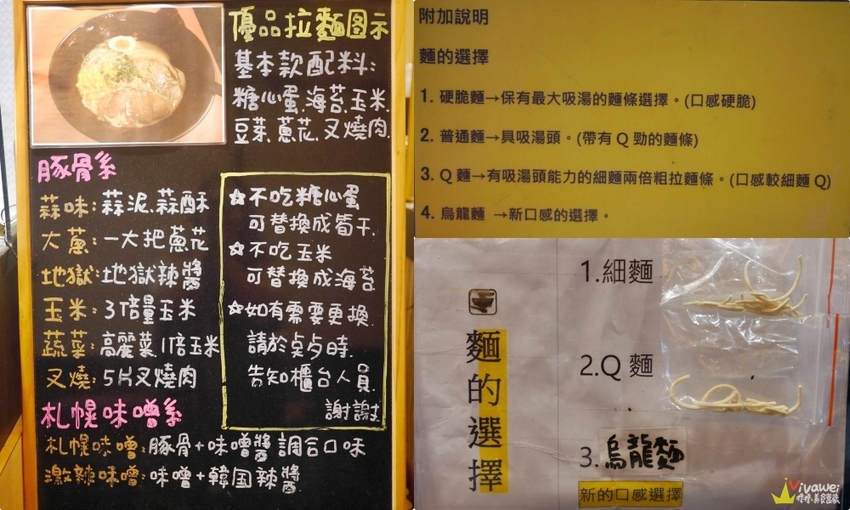 優品拉麵图示
基本款配料:
糖心蛋.海苔.玉米.
豆芽.蔥花.叉燒肉
豚骨系
蒜味:蒜泥.蒜酥
大蔥:一大把蔥花
地獄:地獄辣醬
玉米:3倍量玉米
蔬菜:高麗菜.1倍玉米
叉燒:5片叉燒肉
☆不吃糖心蛋
可替換成筍干.
☆不吃玉米
可替換成海苔
☆如有需要更換.
請於点歺時.
告知櫃台人員.
謝謝!
札幌味噌系
札幌味噌:豚骨+味噌醬調合口味
激辣味噌:味噌+韓国辣醬
附加說明
麵的選擇
1. 硬脆麵→保有最大吸湯的麵條選擇。(口感硬脆)
2. 普通麵→具吸湯頭。(帶有 Q 勁的麵條)
3. Q 麵→有吸湯頭能力的細麵兩倍粗拉麵條。(口感較細麵 Q)
4. 烏龍麵 →新口感的選擇。
麵的選擇
1.細麵
2.Q 麵
3.烏龍麵
新的口感選擇
Vivawei